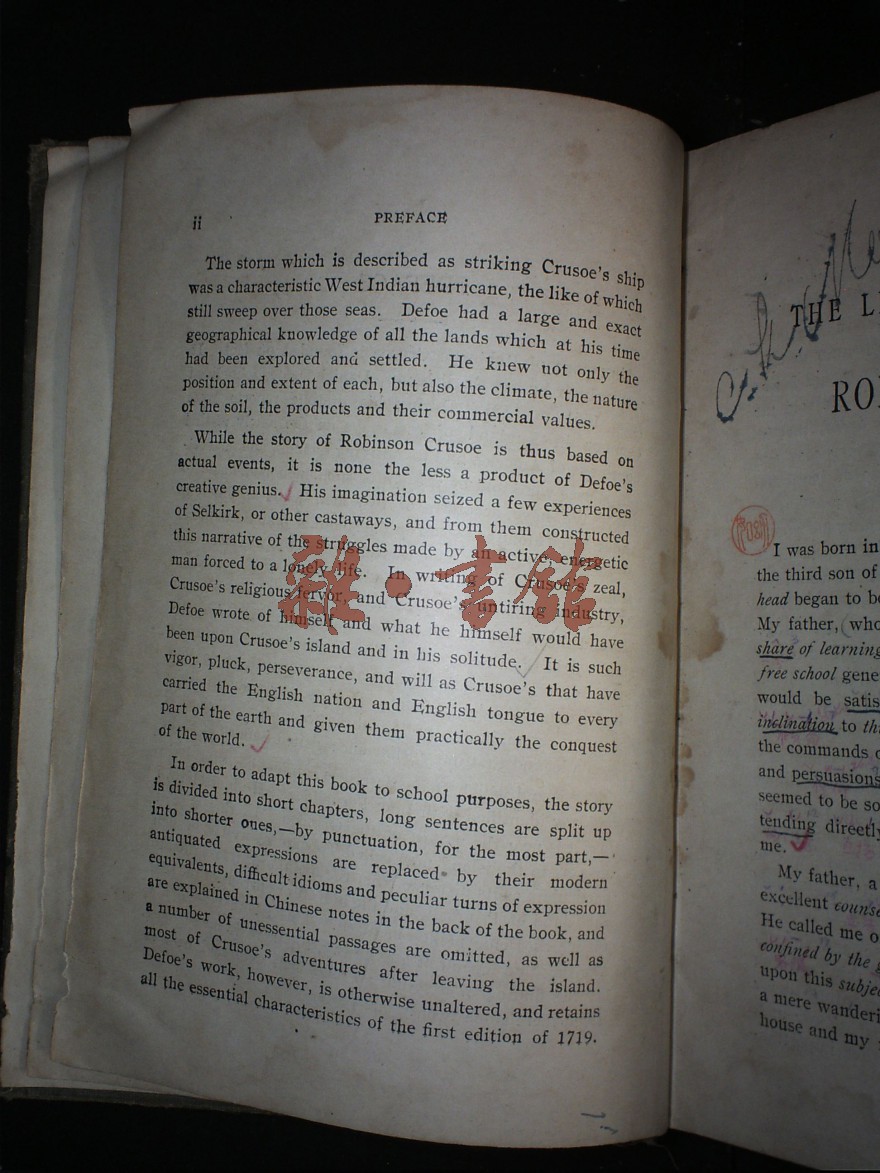 ii PREFACE
The storm which is described as striking Crusoe's ship
was a characteristic West Indian hurricane, the like of which
still sweep over those seas. Defoe had a large and exact
geographical knowledge of all the lands which at his time
had been explored and settled. He knew not only the
position and extent of each, but also the climate, the nature
of the soil, the products and their commercial values.
While the story of Robinson Crusoe is thus based on
actual events, it is none the less a product of Defoe's
creative genius. His imagination seized a few experiences
of Selkirk, or other castaways, and from them constructed
this narrative of the struggles made by an active, energetic
man forced to a lonely life. In writing of Crusoe's zeal,
Crusoe's religious fervor, and Crusoe's untiring industry,
Defoe wrote of himself and what he himself would have
been upon Crusoe's island and in his solitude. It is such
vigor, pluck, perseverance, and will as Crusoe's that have
carried the English nation and English tongue to every
part of the earth and given them practically the conquest
of the world.
In order to adapt this book to school purposes, the story
is divided into short chapters, long sentences are split up
into shorter ones,—by punctuation, for the most part,—
antiquated expressions are replaced by their modern
equivalents, difficult idioms and peculiar turns of expression
are explained in Chinese notes in the back of the book, and
a number of unessential passages are omitted, as well as
most of Crusoe's adventures after leaving the island.
Defoe's work, however, is otherwise unaltered, and retains
all the essential characteristics of the first edition of 1719.
雜·書館
THE L
RO
I was born in
the third son of
head began to b
My father, who
share of learning
free school gene
would be satis
inclination to th
the commands
and persuasions
seemed to be so
tending directly
me.
My father, a
excellent counse
He called me o
confined by the g
upon this subje
a mere wanderi
house and my